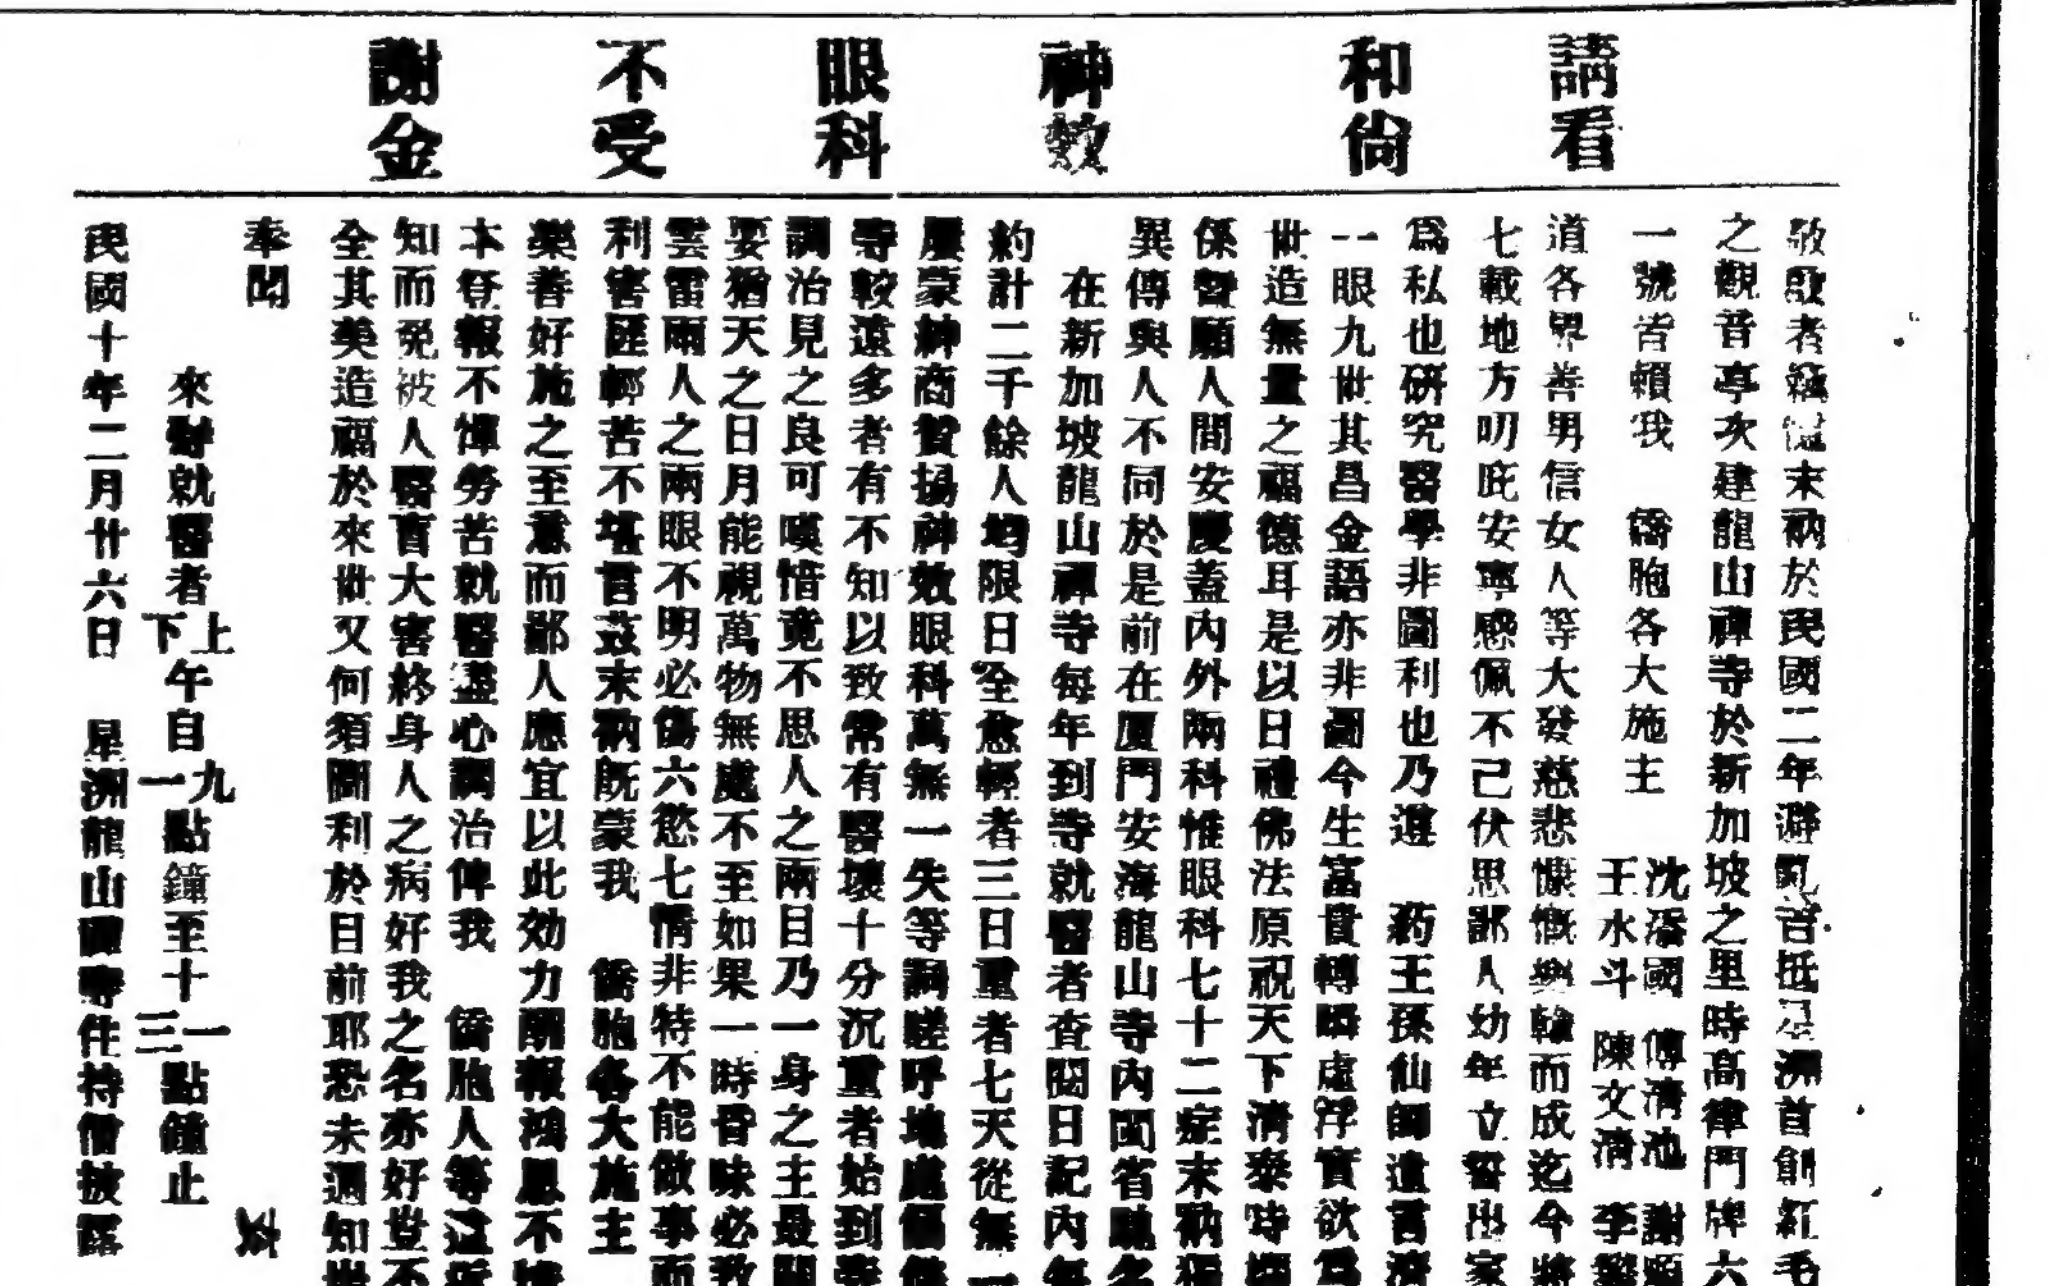 請看 和尙 神效 眼科 不受 謝金
敬啟者竊念末衲於民國二年避亂苦抵星洲首創紅毛
之觀音亭次建龍山禪寺於新加坡之里時髙律門牌六
一號皆賴我 僑胞各大施主 沈潘國 傅淸池 謝
王水斗 陳文淸 李
道各界善男信女人等大發慈悲慷慨樂輸而成迄今將
七載地方叨庇安寧感佩不己伏思鄙人幼年立誓出家
爲私也硏究醫學非圖利也乃遵 葯王孫仙師遺言濟
一眼九世其昌金語亦非圖今生富貴轉瞬虛浮實欲爲
世造無量之福德耳是以日禮佛法原祝天下淸泰時
係誓願人間安慶蓋內外兩科惟眼科七十二症末衲獨
異傳與人不同於是前在厦門安海龍山寺內閩省馳名
在新加坡龍山禪寺每年到寺就醫者査閱日記內每
約計二千餘人均限日全愈輕者三日重者七天從無一
屢蒙紳商贊揚神效眼科萬無一失等詞嗟呼塊處偏
寺較遠多者有不知以致常有醫壞十分沉重者始到
調治見之良可嘆惜竟不思人之兩目乃一身之主最關
要猶天之日月能視萬物無處不至如果一時昏昧必致
雲雷雨人之兩眼不明必傷六慾七情非特不能做事而
利害匪輕苦不堪言茲末衲既蒙我 僑胞各大施主
樂善好施之至意而鄙人應宜以此効力酬報鴻恩不
本登報不憚勞苦就醫盡心調治俾我 僑胞人等遠
知而免被人醫盲大害終身人之病好我之名亦好豈不
全其美造福於來世又何須圖利於目前耶恐未週知
奉聞
來對就醫者上下午自九一點鐘至十一三點鐘止
民國十年二月廿六日 星洲龍山禪寺住持僧披露